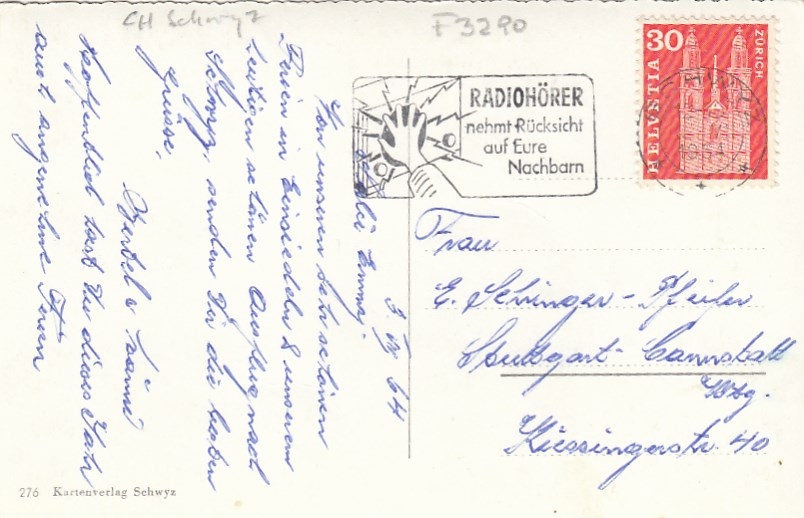 CH Schwyz
F3290
30
HELVETIA
ZÜRICH
RADIOHÖRER
nehmt Rücksicht
auf Eure
Nachbarn
3. VII 64
Emmy.
Von unseren sehr schönen
Ferien in Einsiedeln & unserem
heutigen schönen Ausflug nach
Schwyz, senden Dir die lieben
Grüsse,
&
Hoffentlich hast Du dieses Jahr
auch angenehme Ferien
Frau
E. Schinger-Pfeifer
Stuttgart-Cannstatt
Wttbg.
Kissingerstr. 40
276 Kartenverlag Schwyz